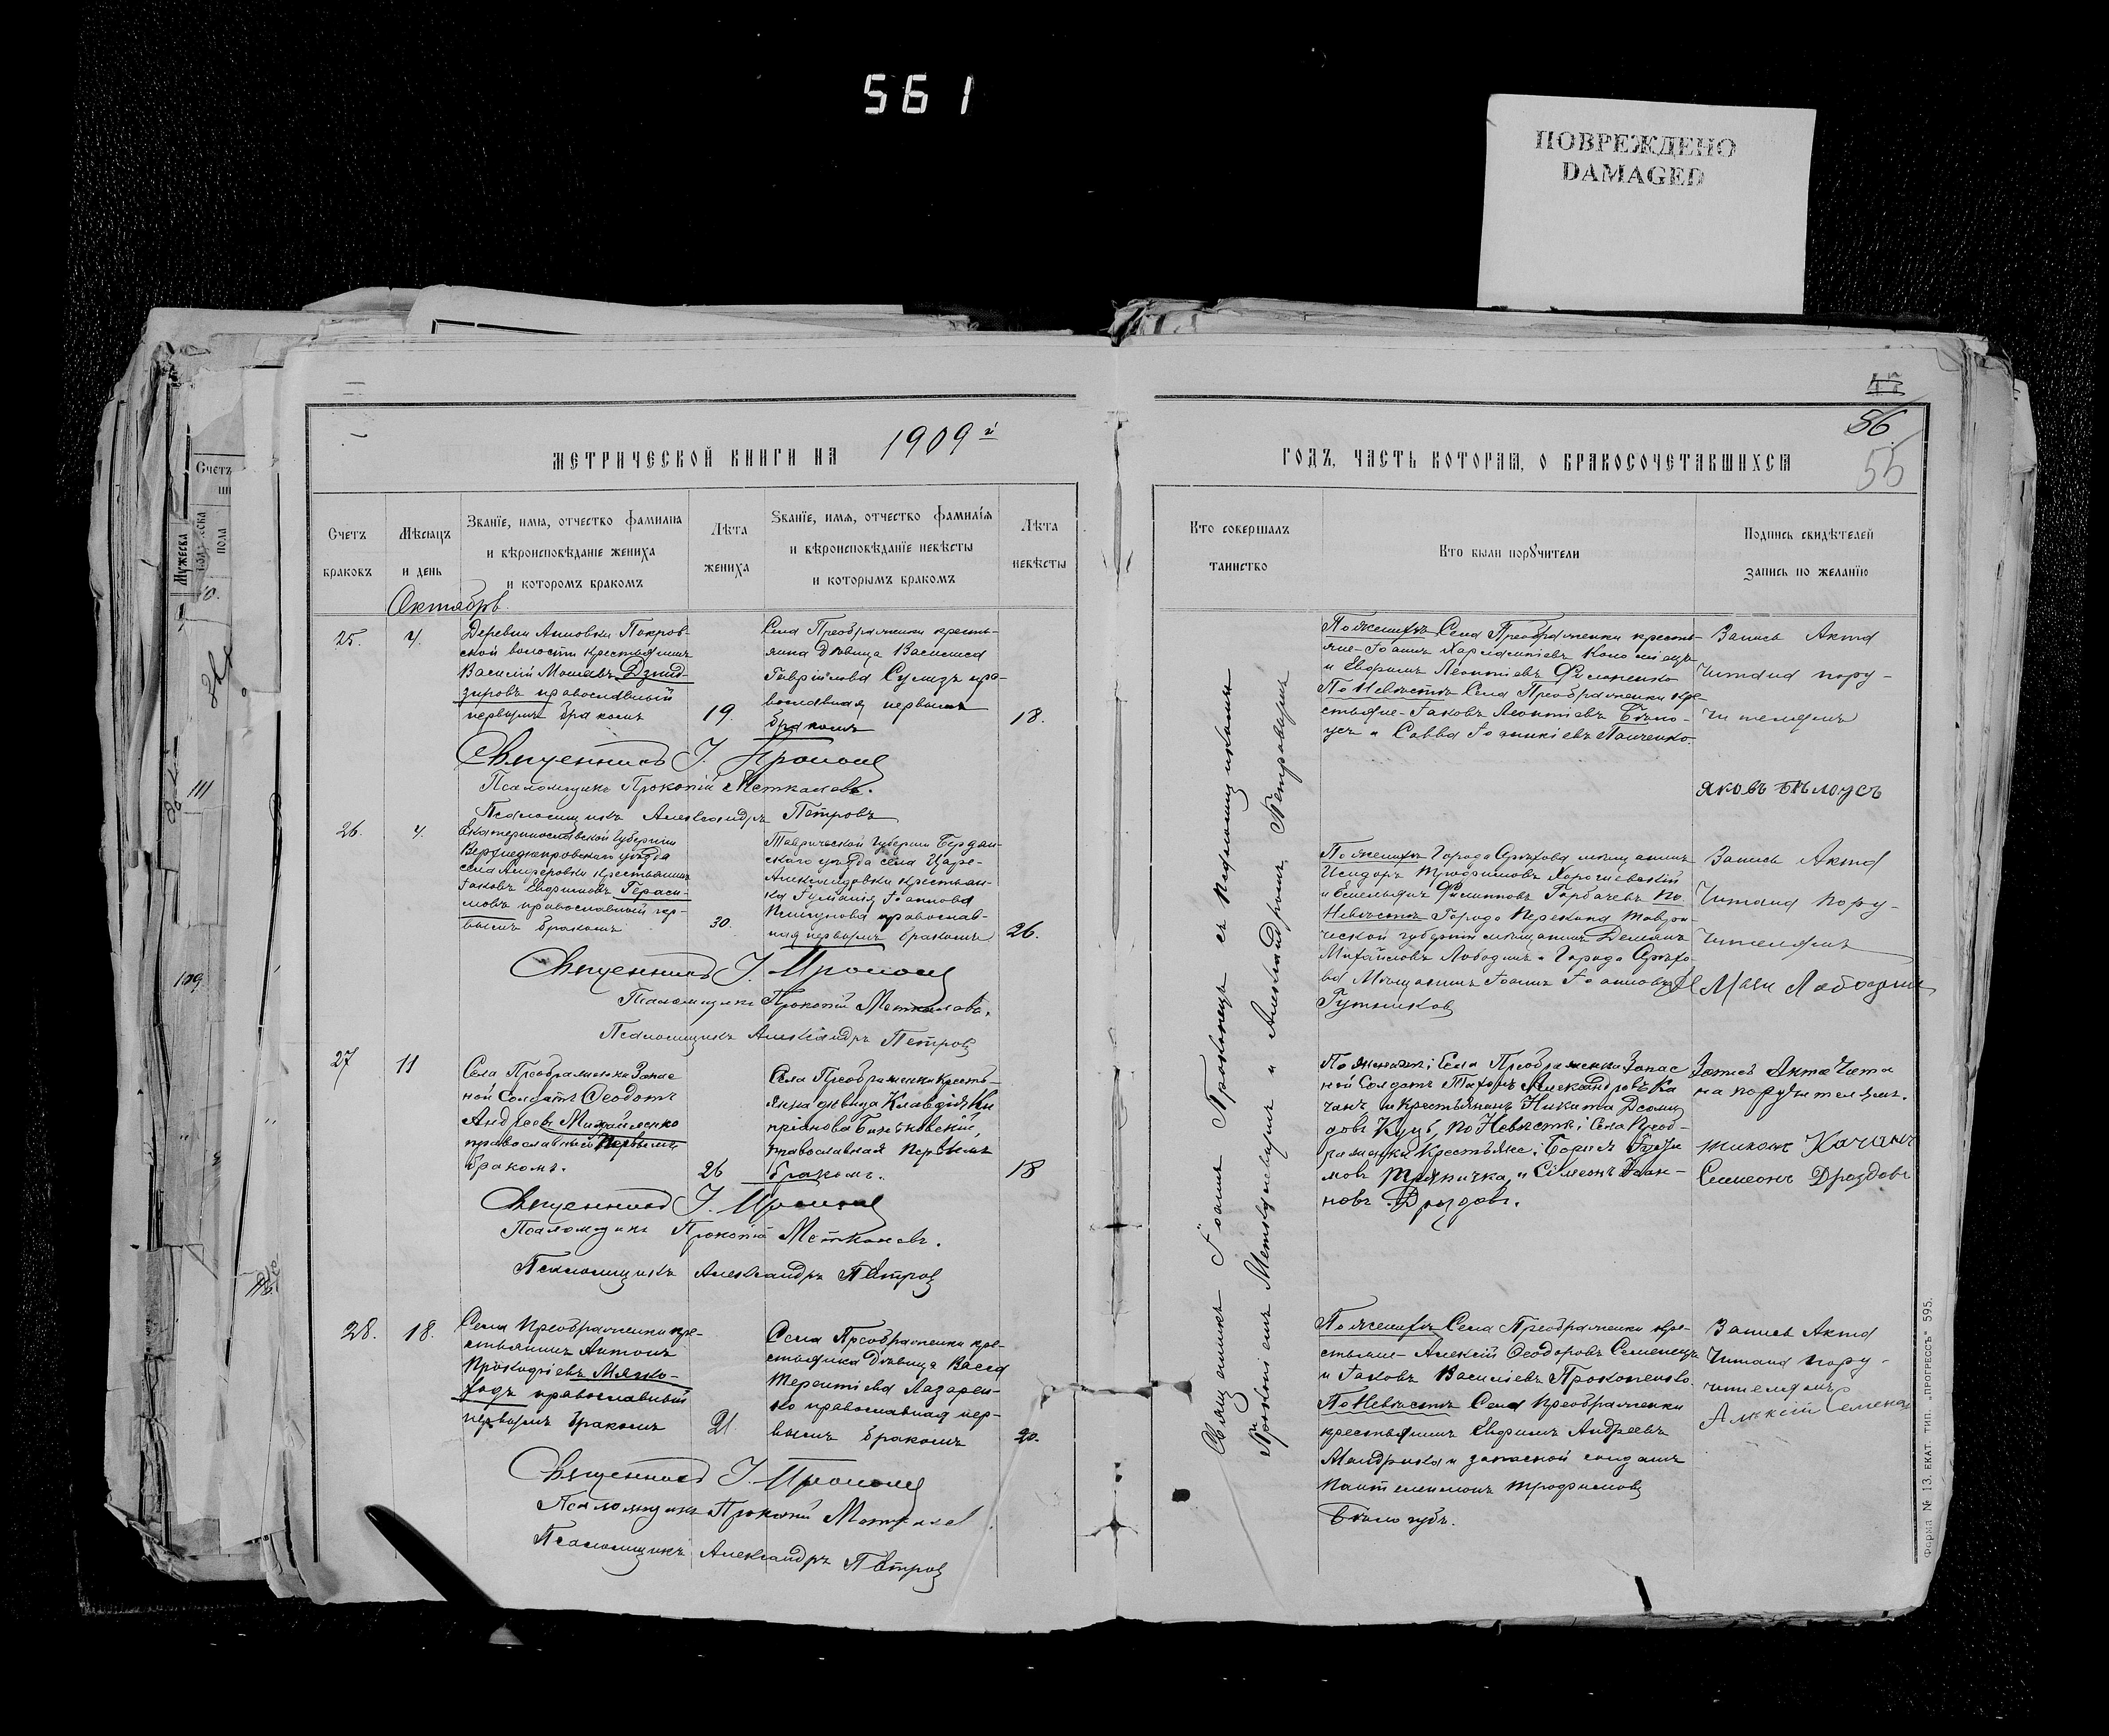 561
ПОВРЕЖДЕНО
DAMAGED
47
56
55
МЕТРИЧЕСКОЙ КНИГИ НА 1909й
ГОДЪ, ЧАСТЬ ВТОРАЯ, О БРАКОСОЧЕТАВШИХСЯ
Счетъ
браковъ
Мѣсяцъ
и день
Званіе, имя, отчество фамилія
и вѣроисповѣданіе жениха
и которомъ бракомъ
Лѣта
жениха
Званіе, имя, отчество фамилія
и вѣроисповѣданіе невѣсты
и которымъ бракомъ
Лѣта
невѣсты
Кто совершалъ
таинство
Кто были поручители
Подпись свидѣтелей
запись по желанію
Октябрь
25.
4.
Деревни Анновки Покров-
ской волости крестьянинъ
Василій
православный
первымъ бракомъ
19.
Села Преображенки кресть-
янка дѣвица Василиса
Гавріилова Сулизъ пра-
вославная первымъ
бракомъ
18.
По женихѣ Села Преображенки кресть-
яне Іоаннъ Харлампіевъ Коломіецъ
и Евфимъ Леонтіевъ Филоненко
По Невѣстѣ Села Преображенки кре-
стьяне Іаковъ Леонтіевъ Бѣло-
усъ и Савва Іоанникіевъ Панченко.
Запись Акта
Читана пору-
чителямъ
Яковъ Бѣлоусъ
Священникъ І. Прокопецъ
Псаломщикъ Прокопій
Псаломщикъ Александръ Петровъ
26.
4.
Екатеринославской Губерніи
Верхнеднепровскаго уѣзда
села Алферовки крестьянинъ
Іаковъ Евфимовъ Гераси-
мовъ православный пер-
вымъ бракомъ
30.
Таврической Губерніи Бердян-
скаго уѣзда села Царе-
Александровки крестьян-
ка Іуліанія Іоаннова
православ-
ная первымъ бракомъ
26.
По женихѣ Города Орѣхова мѣщанинъ
Исидоръ Трофимовъ
и Емельянъ Филипповъ Горбачевъ По
Невѣстѣ Города Перекопа Таври-
ческой губерніи мѣщанинъ Деміанъ
Михайловъ Лободинъ и Города Орѣхо-
ва Мѣщанинъ Іоаннъ Іоанновъ
Запись Акта
Читана Пору-
чителямъ
Священникъ І. Прокопецъ
Псаломщикъ Прокопій
Псаломщикъ Александръ Петровъ
27
11
Села Преображенки Запас
ной Солдатъ Ѳеодотъ
Андреевъ Михайленко
православный Первымъ
бракомъ.
26
Села Преображенки Кресть-
янка дѣвица Клавдія Ки
пріанова
православная Первымъ
бракомъ.
18
По женихѣ: Села Преображенки Запас
ной Солдатъ Тихонъ Александровъ Ка
чанъ и Крестьянинъ Никита
Куцъ, По Невѣстѣ: Села Преоб-
раженки Крестьяне: Борисъ
и Сімеонъ Іоан-
новъ Дроздовъ.
Запись Акта Чита
на поручителямъ.
Тихонъ Качанъ
Симеонъ Дроздовъ
Священникъ І. Прокопецъ
Псаломщикъ Прокопій
Псаломщикъ Александръ Петровъ
28.
18.
Села Преображенки кре-
стьянинъ Антонъ
Прокофіевъ Мяко-
ходъ православный
первымъ бракомъ
21.
Села Преображенки кре-
стьянка Дѣвица Васса
Терентіева Лазарен-
ко православная пер-
вымъ бракомъ
20.
По женихѣ Села Преображенки кре-
стьяне Алексій Ѳеодоровъ Семенецъ
и Іаковъ Василіевъ Прокопенко.
По Невѣстѣ Села Преображенки
крестьянинъ Евфимъ Андреевъ
Мандрика и запасной солдатъ
Пантелеимонъ Трофимовъ
Бѣлогубъ.
Запись Акта
Читана пору-
чителямъ
Алексій Семенец
Священникъ І. Прокопецъ
Псаломщикъ Прокопій
Псаломщикъ Александръ Петровъ
Священникъ Іоаннъ Прокопецъ съ псаломщиками
Прокопіемъ и Александромъ Петровымъ
Форма № 13. ЕКАТ. ТИП. „ПРОГРЕССЪ" 595.